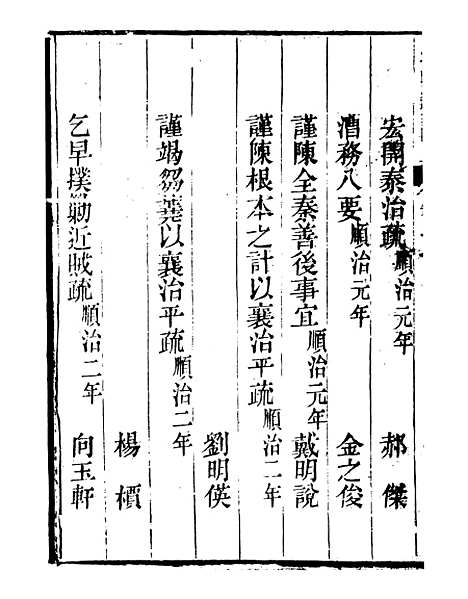 宏開泰治疏順治元年 郝傑
漕務八要順治元年 金之俊
謹陳全秦善後事宜順治元年 戴明說
謹陳根本之計以襄治平疏順治二年
劉明偀
謹竭芻蕘以襄治平疏順治二年
楊檟
乞早撲勦近賊疏順治二年 向玉軒